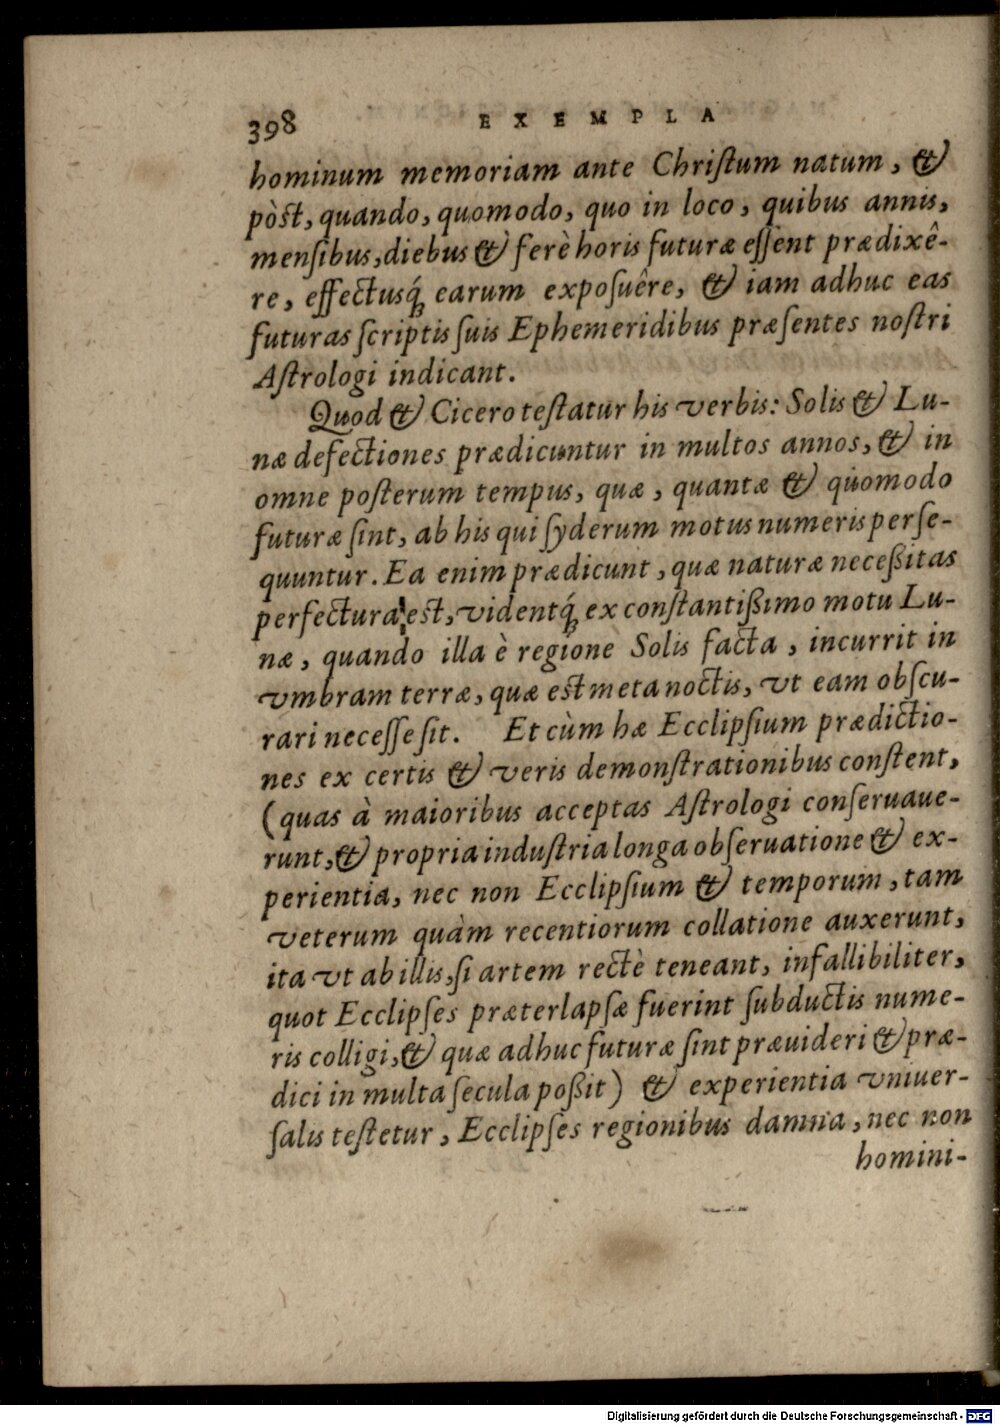 398 EXEMPLA
hominum memoriam ante Chriſtum natum, &
pòſt, quando, quomodo, quo in loco, quibus annis,
menſibus, diebus & ferè horis futuræ eſſent prædixê-
re, effectusq́; earum expoſuêre, & iam adhuc eas
futuras ſcriptis ſuis Ephemeridibus præſentes noſtri
Aſtrologi indicant.
Quod & Cicero teſtatur his verbis: Solis & Lu-
næ defectiones prædicuntur in multos annos, & in
omne poſterum tempus, quæ, quantæ & quomodo
futuræ ſint, ab his qui ſyderum motus numeris perſe-
quuntur. Ea enim prædicunt, quæ naturæ neceßitas
perfectura eſt, videntq́; ex conſtantißimo motu Lu-
næ, quando illa è regione Solis facta, incurrit in
vmbram terræ, quæ eſt meta noctis, vt eam obſcu-
rari neceſſe ſit. Et cùm hæ Ecclipſium prædictio-
nes ex certis & veris demonſtrationibus conſtent,
(quas à maioribus acceptas Aſtrologi conſeruaue-
runt, & propria induſtria longa obſeruatione & ex-
perientia, nec non Ecclipſium & temporum, tam
veterum quàm recentiorum collatione auxerunt,
ita vt ab illis, ſi artem rectè teneant, infallibiliter,
quot Ecclipſes præterlapſæ fuerint ſubductis nume-
ris colligi, & quæ adhuc futuræ ſint præuideri & præ-
dici in multa ſecula poßit) & experientia vniuer-
ſalis teſtetur, Ecclipſes regionibus damna, nec non
homini-
Digitalisierung gefördert durch die Deutsche Forschungsgemeinschaft - DFG